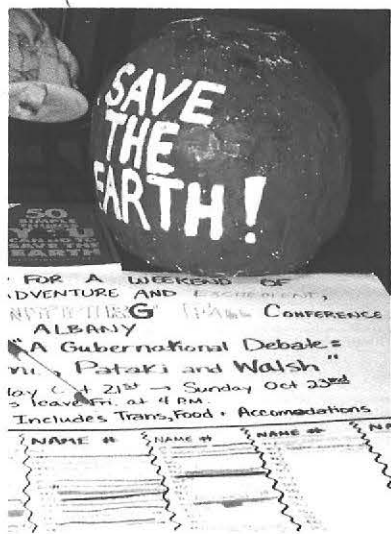 SAVE
THE
EARTH!
50
SIMPLE
THINGS
YOU
CAN DO TO
SAVE THE
EARTH
FOR A WEEKEND OF
ADVENTURE AND EXCITEMENT,
FALL CONFERENCE
ALBANY
"A Gubernatorial Debate:
, Pataki and Walsh"
Oct 21st → Sunday Oct 23rd
leave Fri. at 4 P.M.
Includes Trans, Food + Accomodations
NAME # NAME # NAME # NA